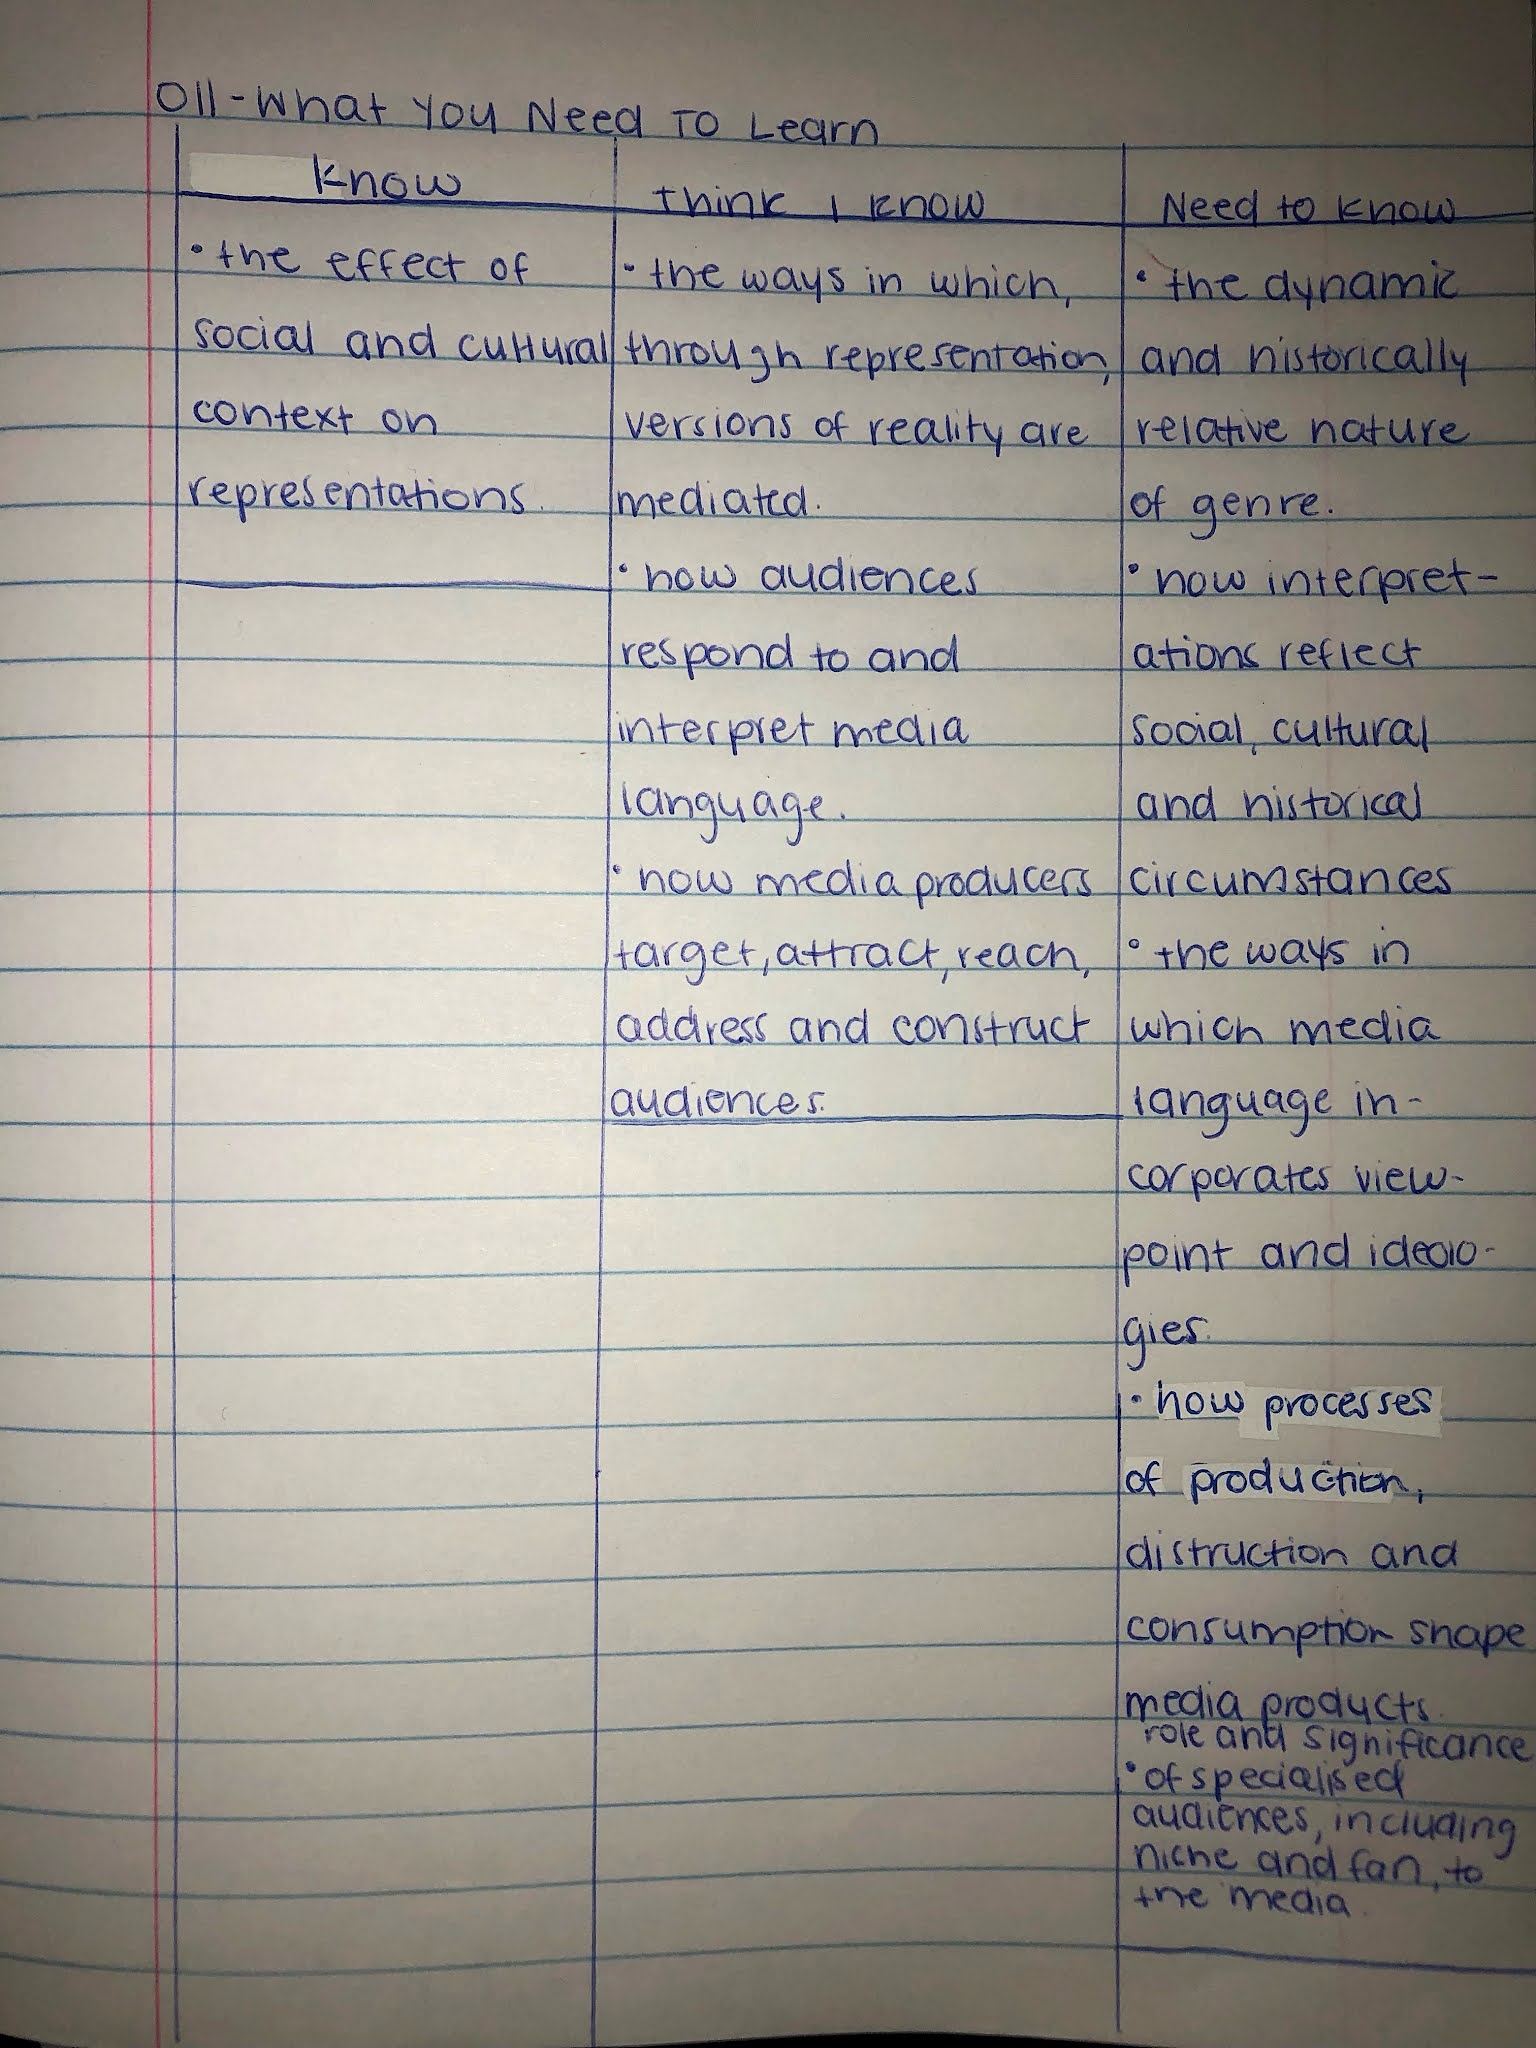 011-What You Need To Learn
Know
the effect of
social and cultural
context on
representations.
Think I know
the ways in which,
through representation,
versions of reality are
mediated.
how audiences
respond to and
interpret media
language.
how media producers
target, attract, reach,
address and construct
audiences.
Need to know
the dynamic
and historically
relative nature
of genre.
how interpret-
ations reflect
social, cultural
and historical
circumstances
the ways in
which media
language in-
corporates view-
point and ideolo-
gies.
how processes
of production,
distruction and
consumption shape
media products.
role and significance
of specialised
audiences, including
niche and fan, to
the media.